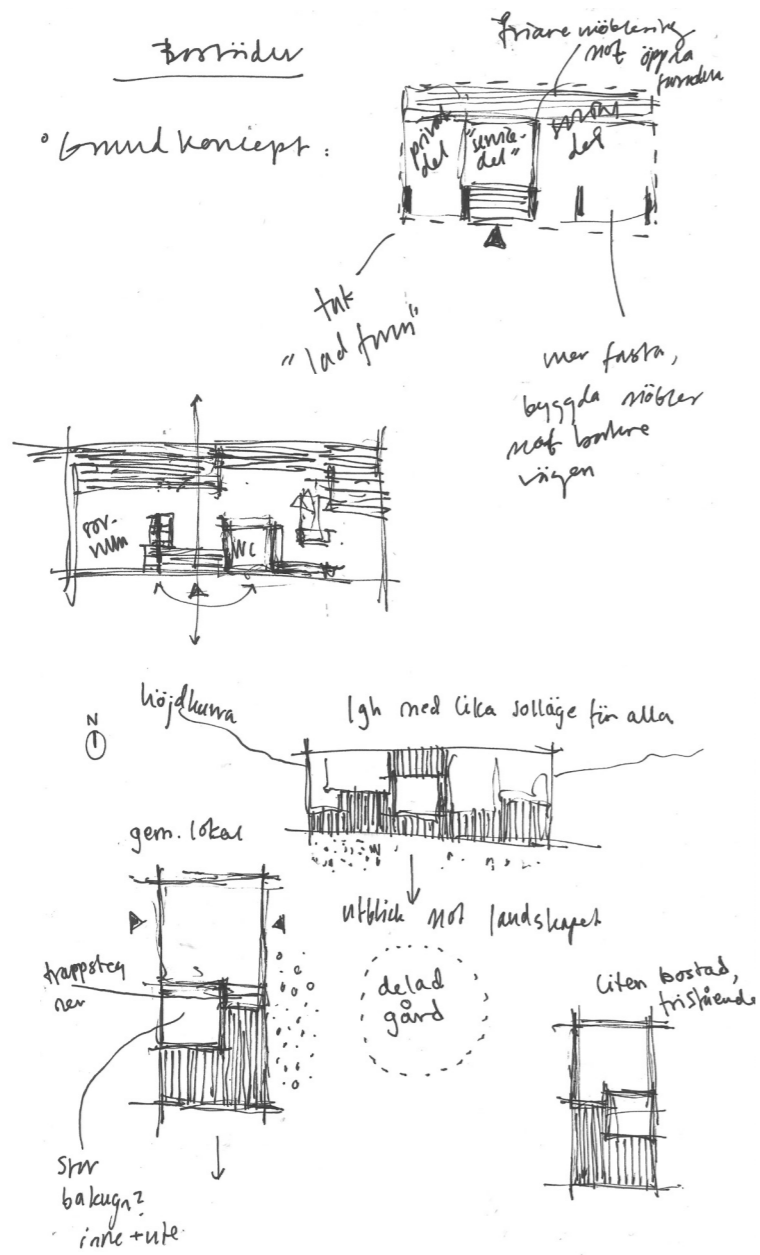 Bostäder
° Grundkoncept:
friare möblering
mot öppna
fasaden
privat
del
"service-
del"
social
del
tak
"lad form"
mer fasta,
byggda möbler
mot bakre
vägen
sov-
rum
WC
höjdkurva
lgh med lika solläge för alla
N
gem. lokal
utblick mot landskapet
trappsteg
ner
delad
gård
liten bostad,
fristående
stor
bakugn?
inne + ute